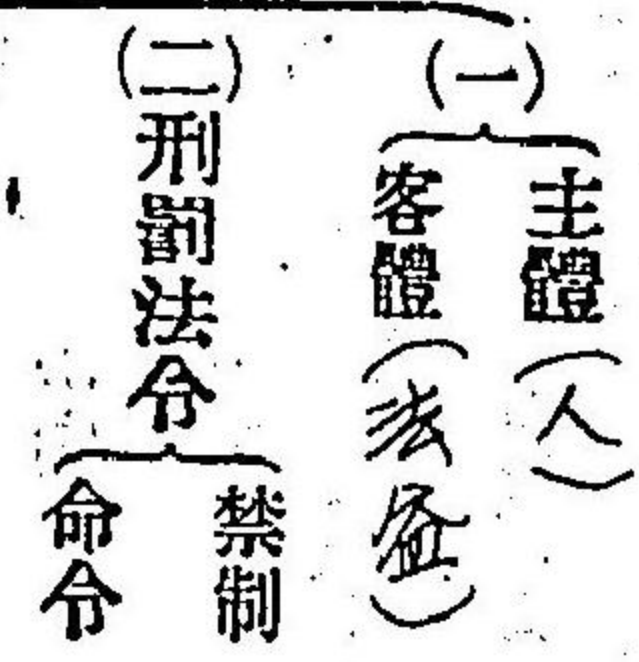 (一)
主體(人)
客體(法益)
(二)刑罰法令
禁制
命令